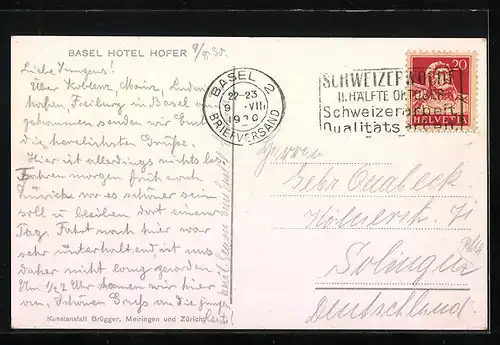 BASEL HOTEL HOFER 9/8.30.
Liebe Jungens!
Über Koblenz, Mainz, Ludwigs-
hafen, Freiburg in Basel an-
gekommen senden wir Euch
die herzlichsten Grüße.
Hier ist allerdings nichts los.
Fahren morgen früh nach
Zürich wo es schöner sein
soll u bleiben dort einen
Tag. Fahrt nach hier war
sehr unterhaltend, ist uns
daher nicht lang geworden
Um 1/2 7 Uhr kamen wir hier
an. Schönen Gruß an die
Kunstanstalt Brügger, Meiringen und Zürich
BASEL 2
22-23
9. VIII.
1930
BRIEFVERSAND
SCHWEIZERWOCHE
II. HÄLFTE OKTOBER
Schweizerarbeit
Qualitätsarbeit
20
HELVETIA
Herren
Gebr.
Kölnerstr. 71
Solingen
Deutschland.